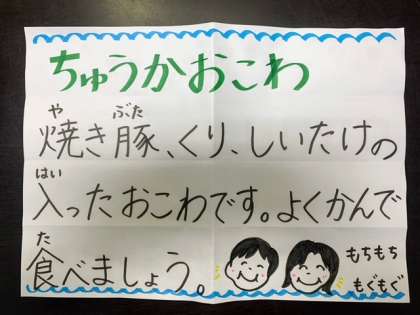 ちゅうかおこわ
焼き豚、くり、しいたけの
入ったおこわです。よくかんで
食べましょう。
もちもち
もぐもぐ